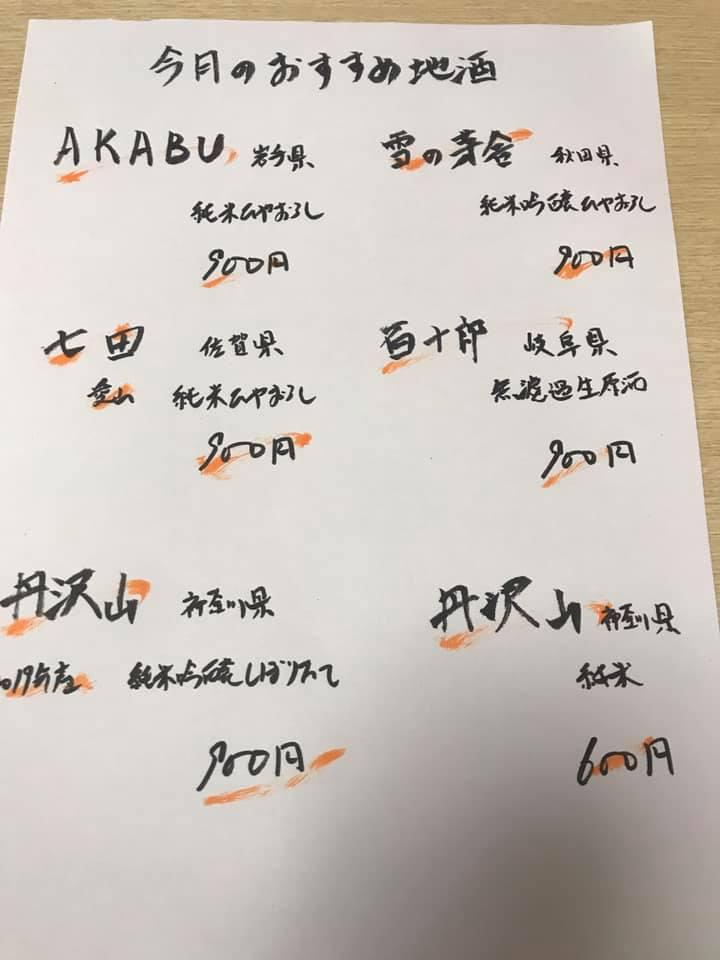 今月のおすすめ地酒
AKABU 岩手県
純米ひやおろし
900円
雪の茅舎 秋田県
純米吟醸ひやおろし
900円
七田 佐賀県
愛山 純米ひやおろし
900円
百十郎 岐阜県
無濾過生原酒
900円
丹沢山 神奈川県
019年産 純米吟醸しぼりたて
900円
丹沢山 神奈川県
純米
600円